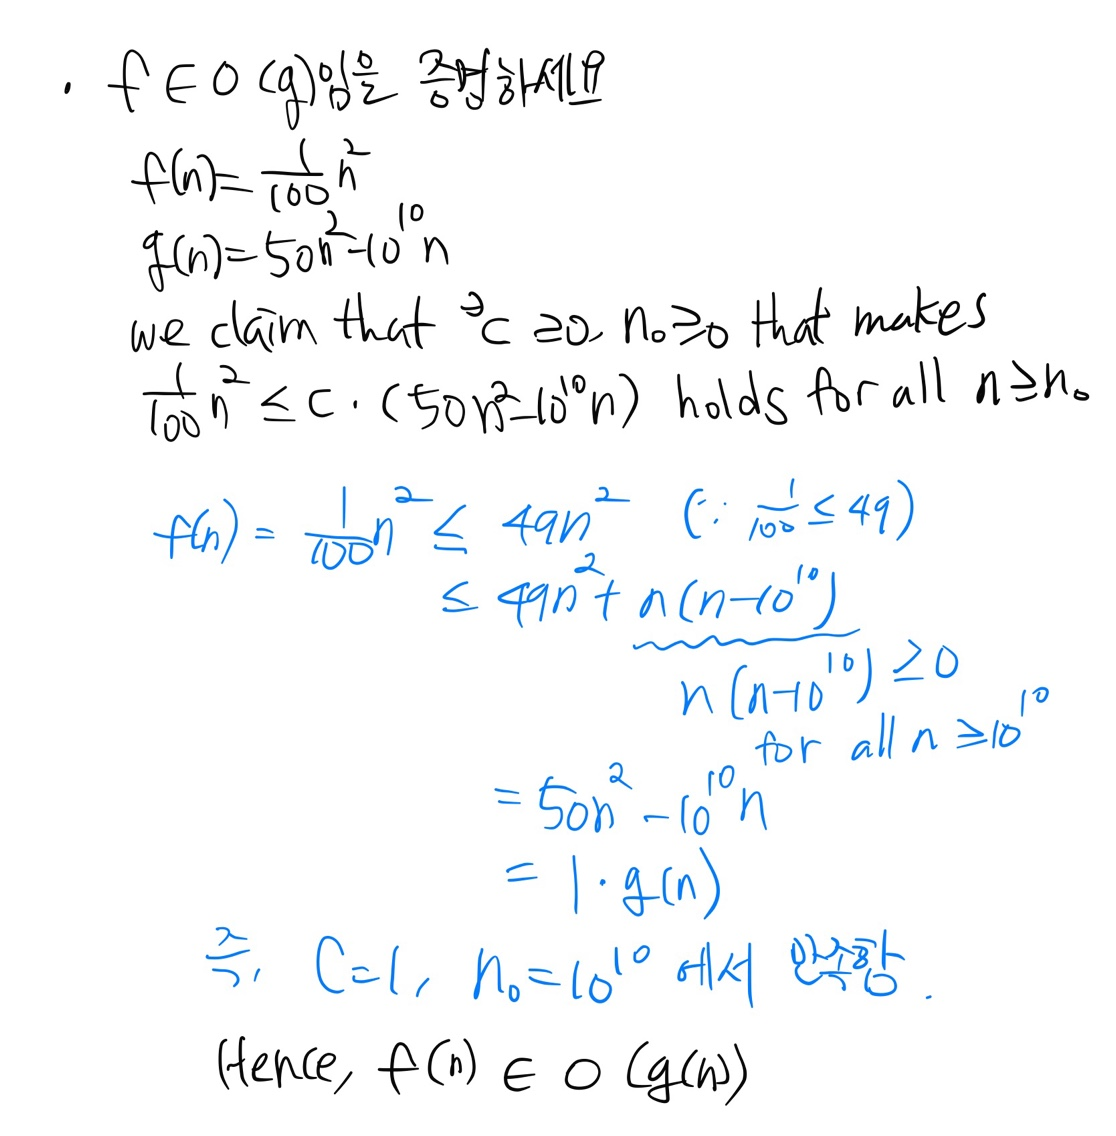 · f ∈ O (g)임을 증명하세요
f(n)= 1/100 n²
g(n)=50n²-10¹⁰n
we claim that ∃c ≥0, n₀≥0 that makes
1/100 n² ≤ c · (50n²-10¹⁰n) holds for all n≥n₀
f(n) = 1/100 n² ≤ 49n² (∵ 1/100 ≤ 49)
≤ 49n² + n(n-10¹⁰)
n(n-10¹⁰) ≥0
for all n ≥10¹⁰
= 50n² - 10¹⁰n
= 1 · g(n)
즉, C=1, n₀=10¹⁰ 에서 만족함.
Hence, f(n) ∈ O (g(n))